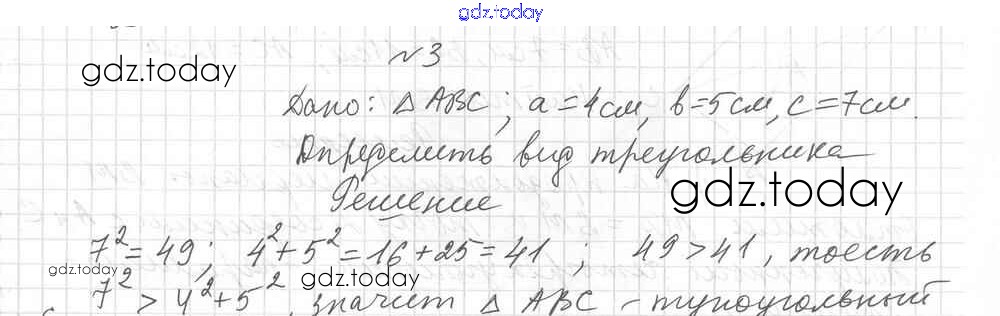 gdz.today
№3
gdz.today
Дано: △ABC; a=4см, b=5см, c=7см.
Определить вид треугольника
gdz.today
Решение
7²=49; 4²+5²=16+25=41 ; 49>41, тоесть
gdz.today
gdz.today
7²>4²+5², значит △ ABC – тупоугольный